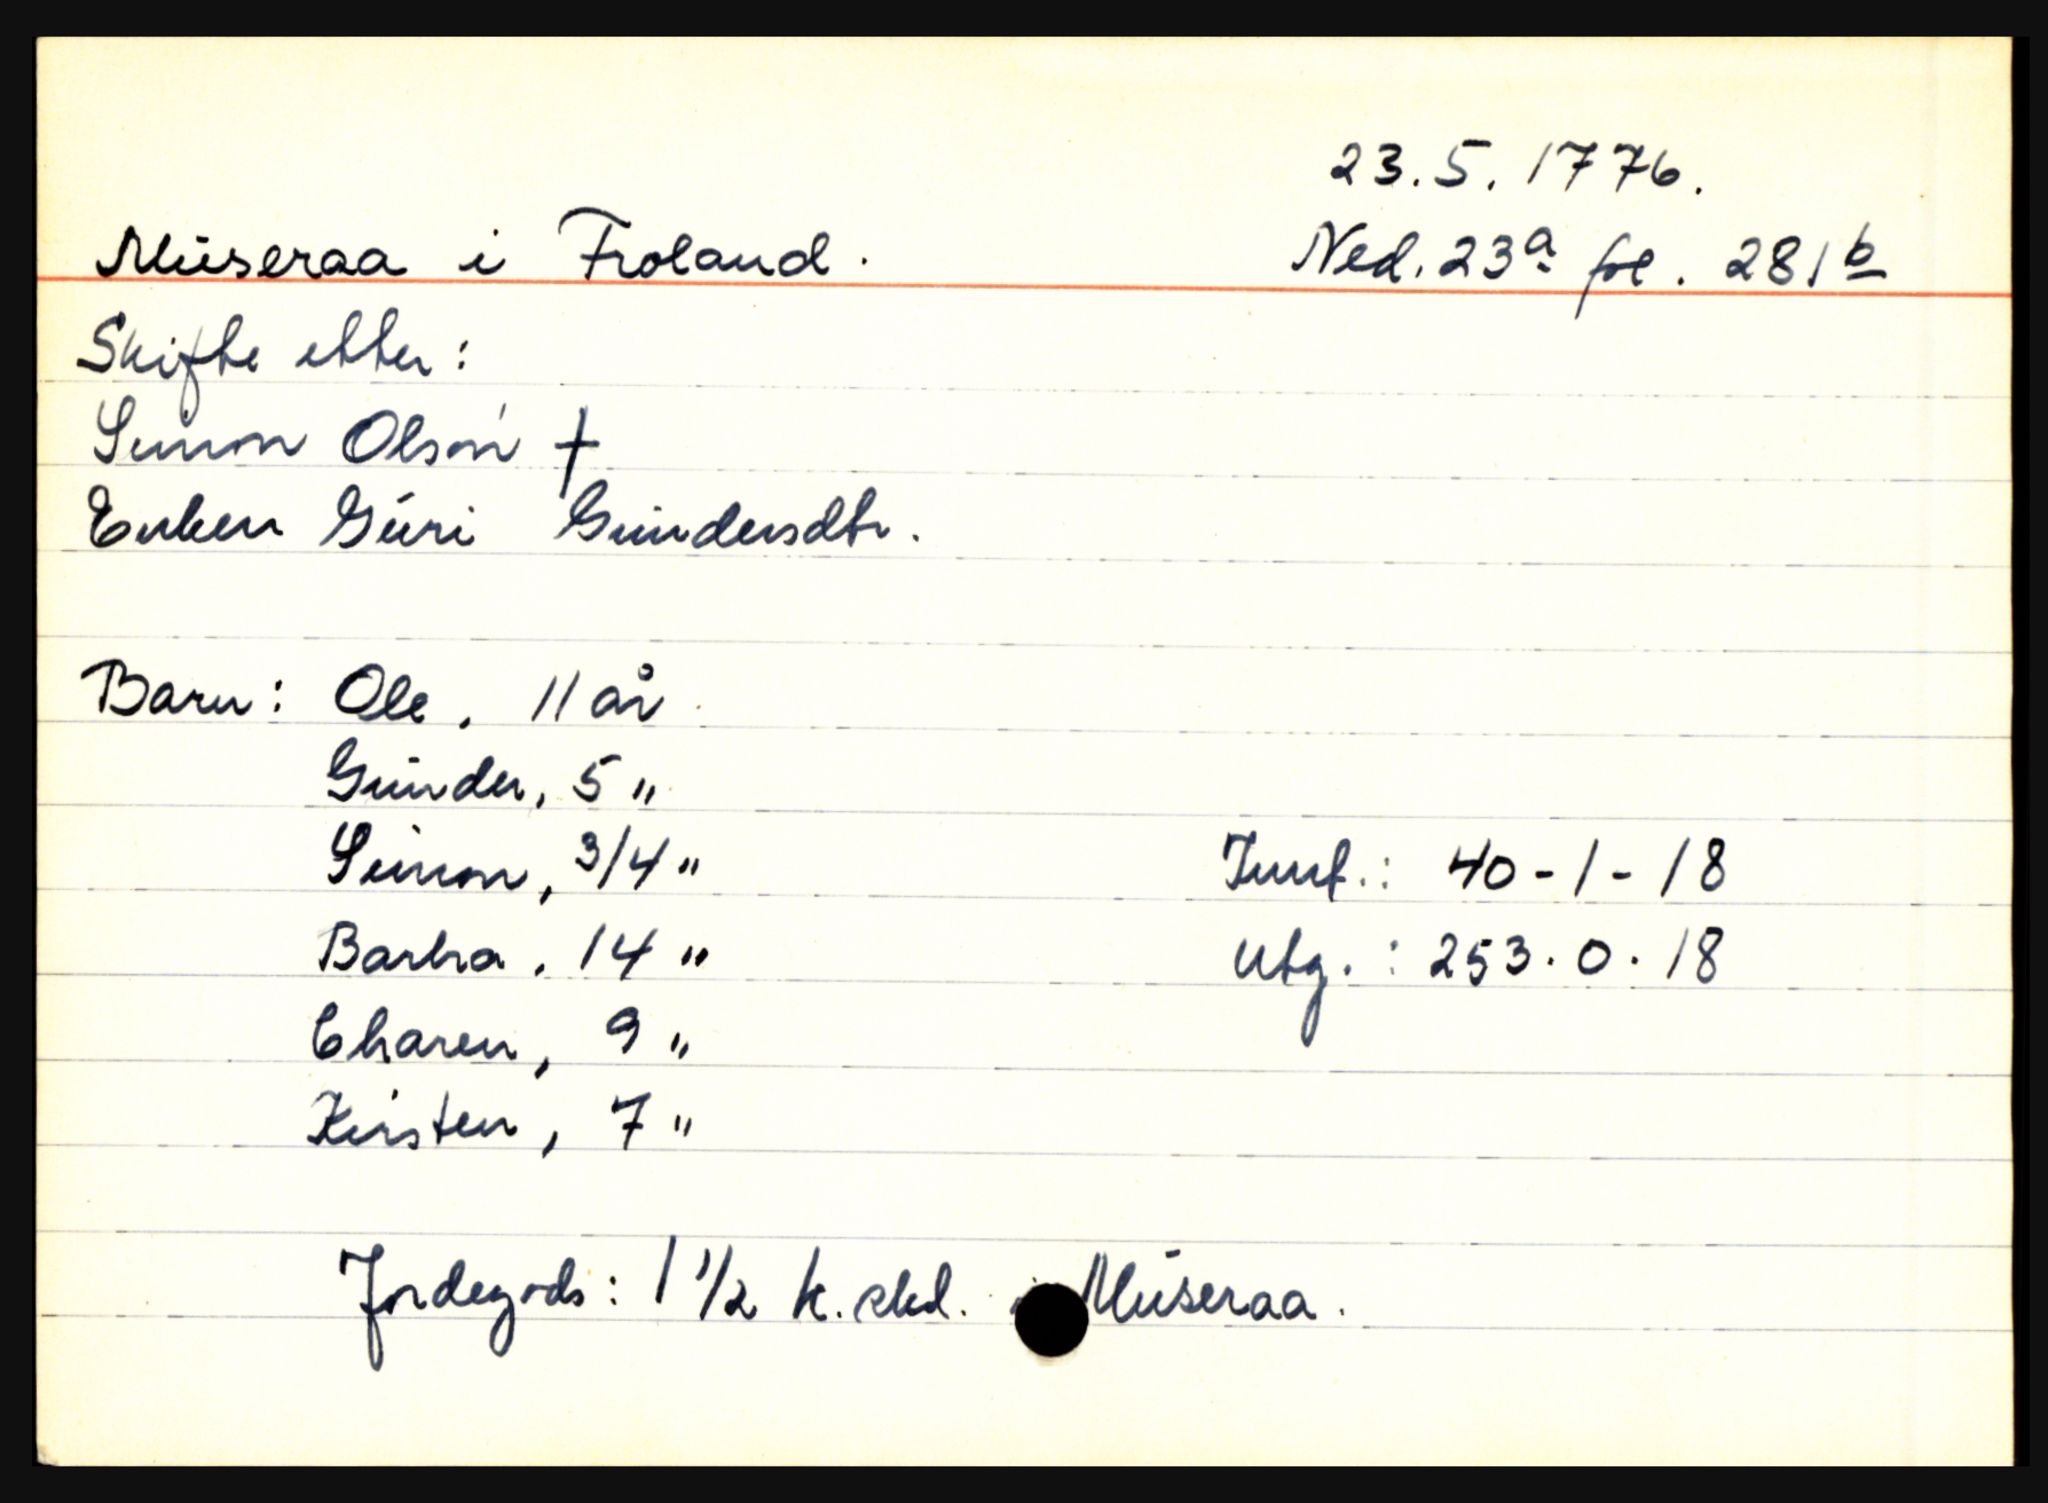 23.5.1776.
Museraa i Froland. Ned. 23a fol. 281b
Skifte etter:
Simon Olson †
Enken Guri Gundersdtr.
Barn: Ole, 11 år
Gunder, 5 "
Simon, 3/4 "
Innt.: 40-1-18
Barbra, 14 "
Utg.: 253.0.18
Charen, 9 "
Kirsten, 7 "
Jordegods: 1 1/2 k. skd. i Museraa.